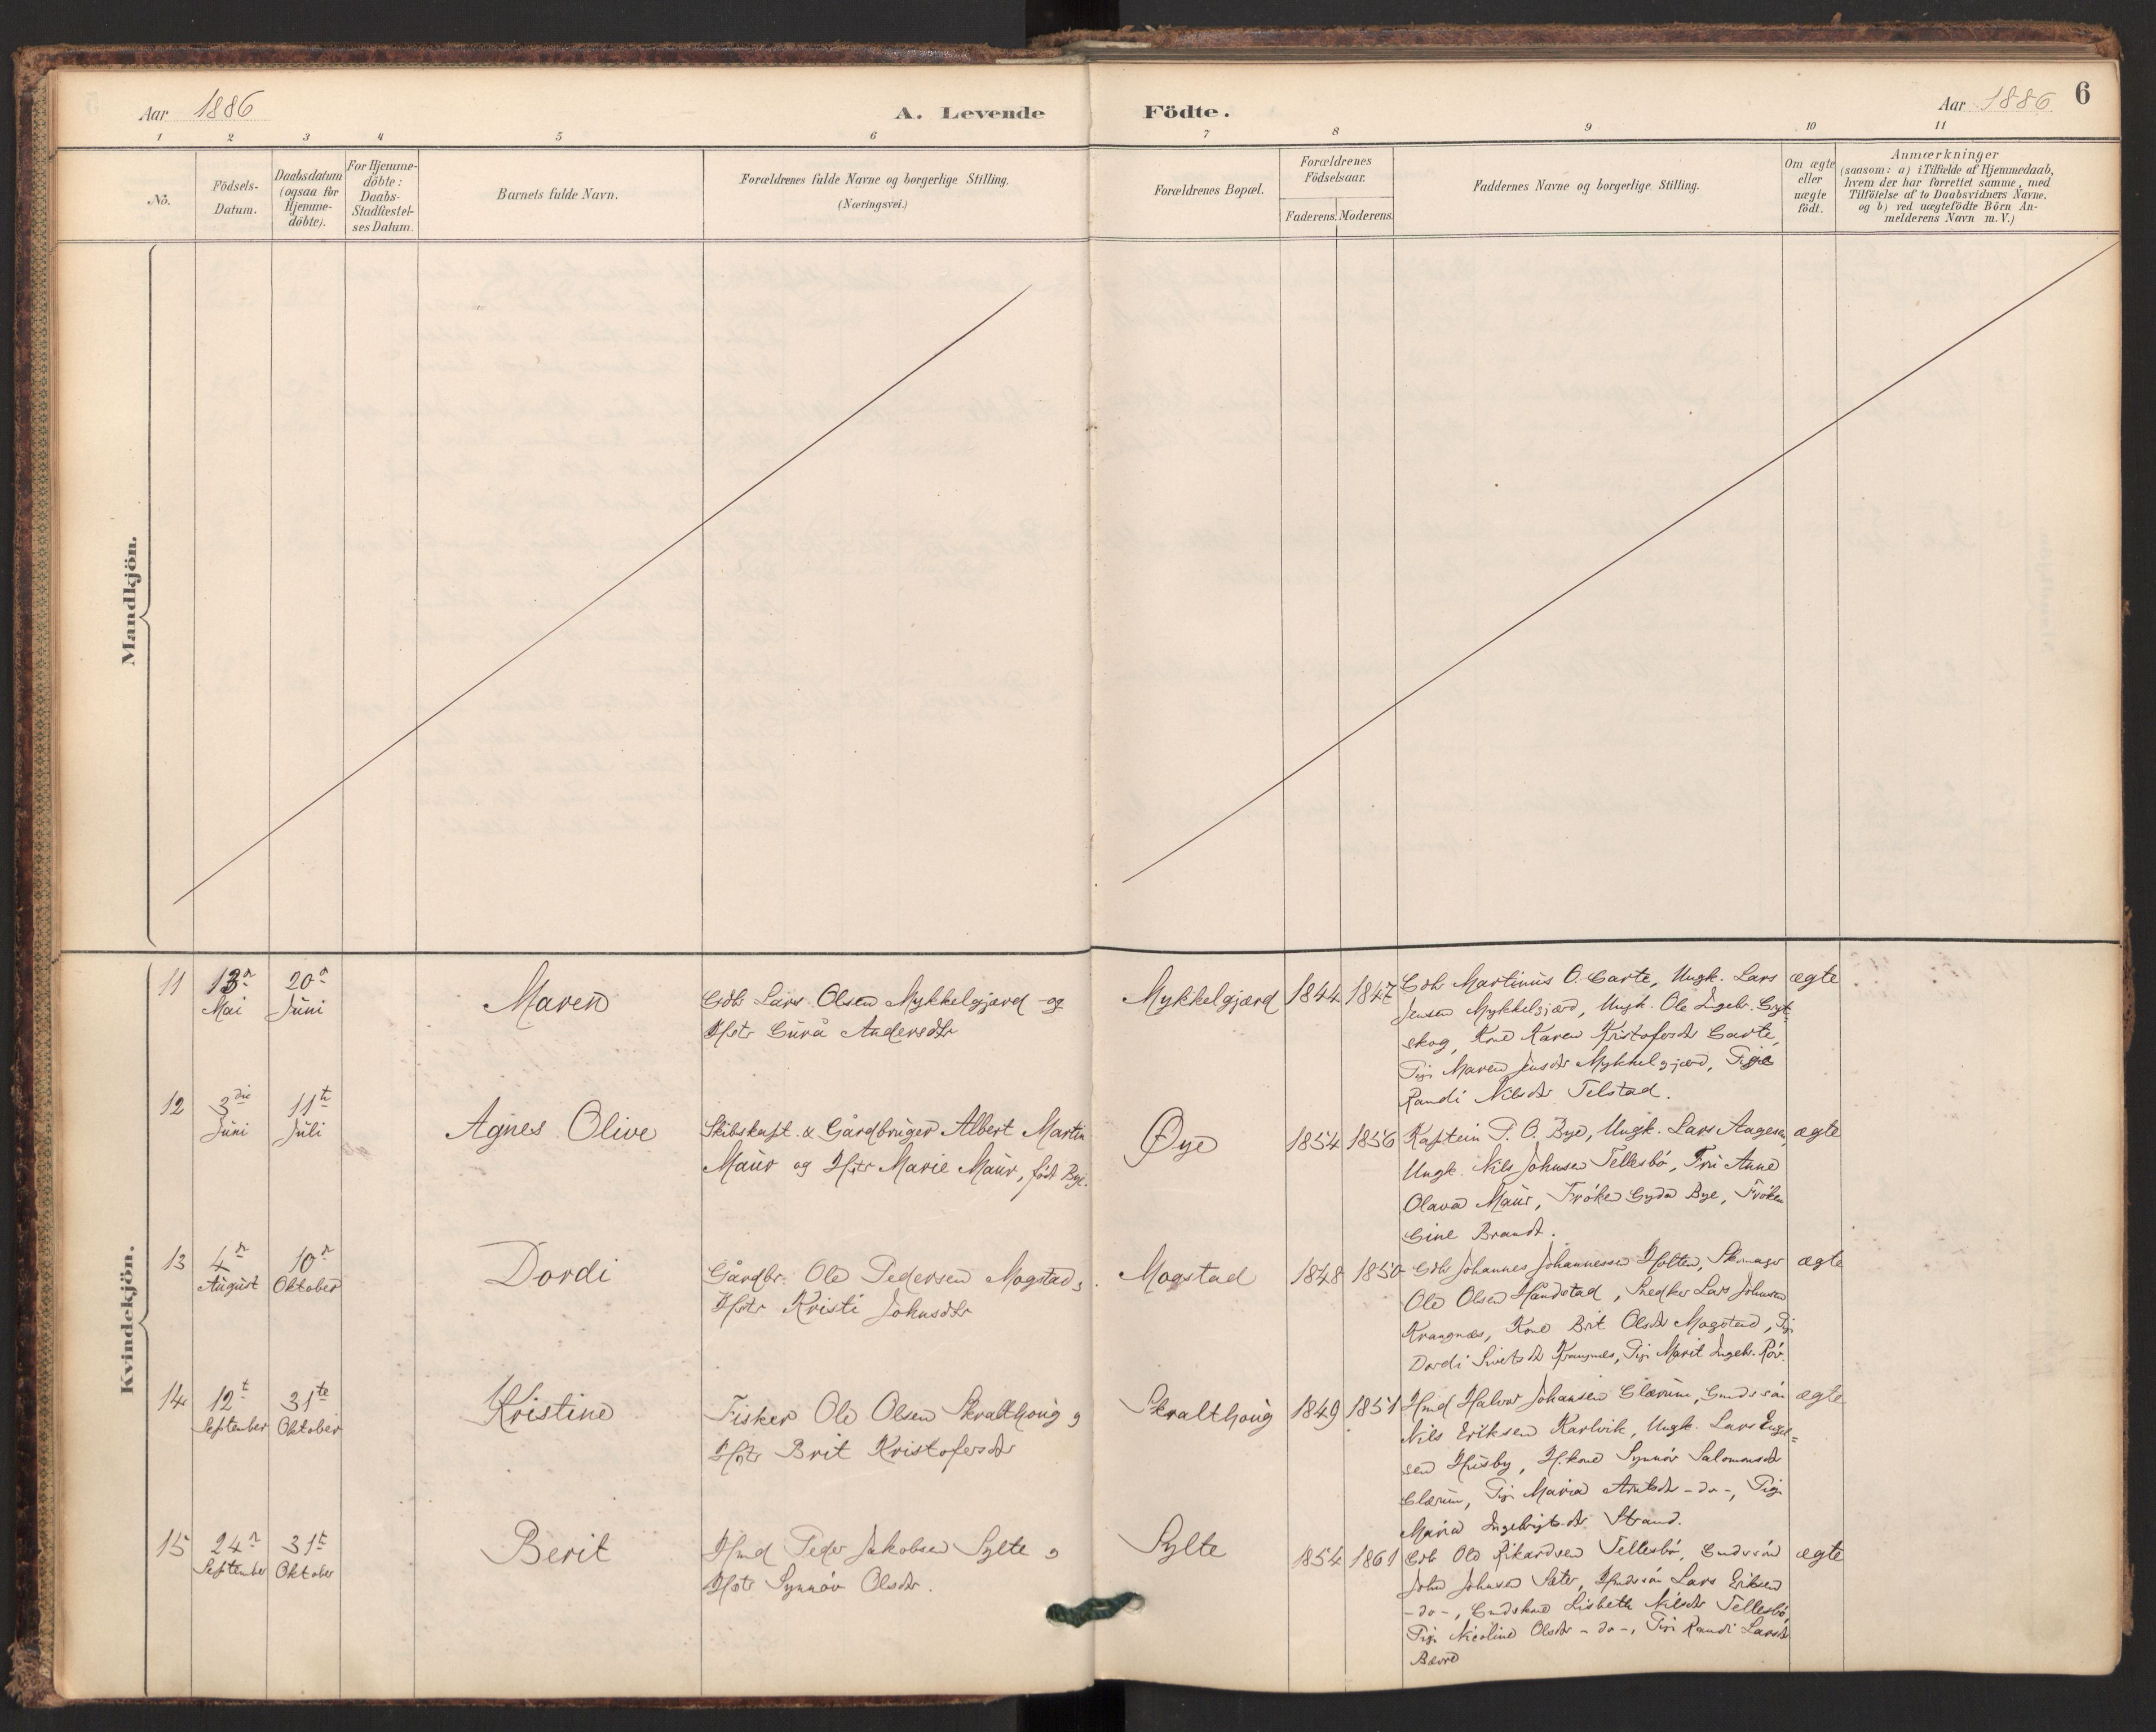 Aar 1886
A. Levende Födte.
Aar 1886 6
1 2 3 4 5 6 7 8 9 10 11
No.
Födsels-
Datum.
Daabsdatum
(ogsaa for
Hjemme-
döbte).
For Hjemme-
döbte:
Daabs-
Stadfæstel-
ses Datum.
Barnets fulde Navn.
Forældrenes fulde Navne og borgerlige Stilling.
(Næringsvei.)
Forældrenes Bopæl.
Forældrenes
Födselsaar.
Faderens. Moderens.
Faddernes Navne og borgerlige Stilling.
Om ægte
eller
uægte
födt.
Anmærkninger
(saasom: a) i Tilfælde af Hjemmedaab,
hvem der har forrettet samme, med
Tilföielse af to Daabsvidners Navne,
og b) ved uægtefödte Börn An-
melderens Navn m. V.)
Mandkjön.
Kvindekjön.
11
13n
Mai
20n
Juni
Maren
Gdbr Lars Olsen Mykkelgjærd og
Hstr Gurå Andersdtr
Mykkelgjærd
1844 1847
Gdbr Martinus O. Garte, Ungk. Lars
Jensen Mykkelgjærd, Ungk. Ole Ingebr. Gryt-
skog, Kone Karen Kristofersdtr Garte,
Pige Maren Jensdtr Mykkelgjærd, Pige
Randi Nilsdtr Telstad.
ægte
12
3die
Juni
11te
Juli
Agnes Olive
Skibskapt. & Gårdbruger Albert Martin
Maur og Hstr Marie Maur, født Bye.
Øye
1854 1856
Kaptein P. O. Bye, Ungk. Lars Aagesen,
Ungk. Nils Johnsen Tellesbö, Fru Anne
Olava Maur, Fröken Gyda Bye, Fröken
Gine Brandt.
ægte
13
4n
August
10n
Oktober
Dordi
Gårdbr. Ole Pedersen Mogstad og
Hstr Kristi Johnsdtr
Mogstad
1848 1850
Gdbr Johannes Johannessen Holten, Skomager
Ole Olsen Handstad, Snedker Lars Johnsen
Krangnæs, Kone Brit Olsdtr Mogstad, Pige
Dordi Sivertsdtr Krangnæs, Pige Marit Ingebr. Röv.
ægte
14
12t
September
31te
Oktober
Kristine
Fisker Ole Olsen Skralthoug og
Hstr Brit Kristofersdtr
Skralthoug
1849 1851
Hmd Halvor Johansen Glærum, Gmdssön
Nils Eriksen Karlvik, Ungk. Lars Engel=
sen Husby, H.kone Synnöv Salomonsdtr
Glærum, Pige Maria Arntsdtr -do-, Pige
Maria Ingebrigtsdtr Strand.
ægte
15
24n
September
31te
Oktober
Berit
Hmd Peder Jakobsen Sylte og
Hstr Synnöv Olsdtr.
Sylte
1854 1861
Gdb Ole Rikardsen Tellesbö, Gmdssön
John Johnsen Sæter, Hmdssön Lars Eriksen
-do-, Gmdskone Lisbeth Nilsdtr Tellesbö,
Pige Nicoline Olsdtr -do-, Pige Randi Larsdtr
Bævre
ægte